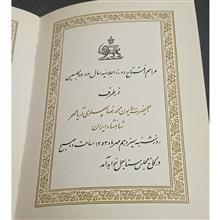 مراسم افتتاح دوره اجلاسیه سال
از طرف
اعلیحضرت همایون محمدرضا پهلوی آریامهر
شاهنشاه ایران
روز شنبه سیزدهم مهرماه ۱۳۵۳ ساعت ده صبح
در کاخ مجلس سنا بعمل خواهد آمد